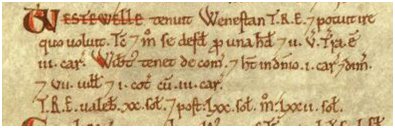 WESTEWELLE tenuit Wenestan T.R.E. ⁊ potuit ire
quo voluit. Tc̄ ⁊ m̊ se defd̄ p una hid̄ ⁊ ii. v̄. Tra ē
iii. car. Witbt tenet de com̄. ⁊ ht in dnio .i. car ⁊ dim̄.
⁊ vii. uilł ⁊ i. cot̄ cū .iii. car.
T.R.E. ualeb̄ .xx. sol. ⁊ post .lxx. sol. m̊ .lxxii. sol.